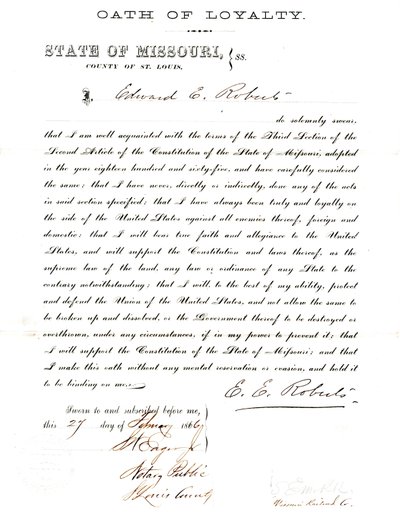 OATH OF LOYALTY.
STATE OF MISSOURI, } SS.
COUNTY OF ST. LOUIS,
I, Edward E. Roberts
do solemnly swear,
that I am well acquainted with the terms of the Third Section of the
Second Article of the Constitution of the State of Missouri, adopted
in the year eighteen hundred and sixty-five, and have carefully considered
the same; that I have never, directly or indirectly, done any of the acts
in said section specified; that I have always been truly and loyally on
the side of the United States against all enemies thereof, foreign and
domestic; that I will bear true faith and allegiance to the United
States, and will support the Constitution and laws thereof, as the
supreme law of the land, any law or ordinance of any State to the
contrary notwithstanding; that I will, to the best of my ability, protect
and defend the Union of the United States, and not allow the same to
be broken up and dissolved, or the Government thereof to be destroyed or
overthrown, under any circumstances, if in my power to prevent it; that
I will support the Constitution of the State of Missouri; and that
I make this oath without any mental reservation or evasion, and hold it
to be binding on me.
E. E. Roberts
Sworn to and subscribed before me,
this 27 day of February 186
Notary Public
St Louis County